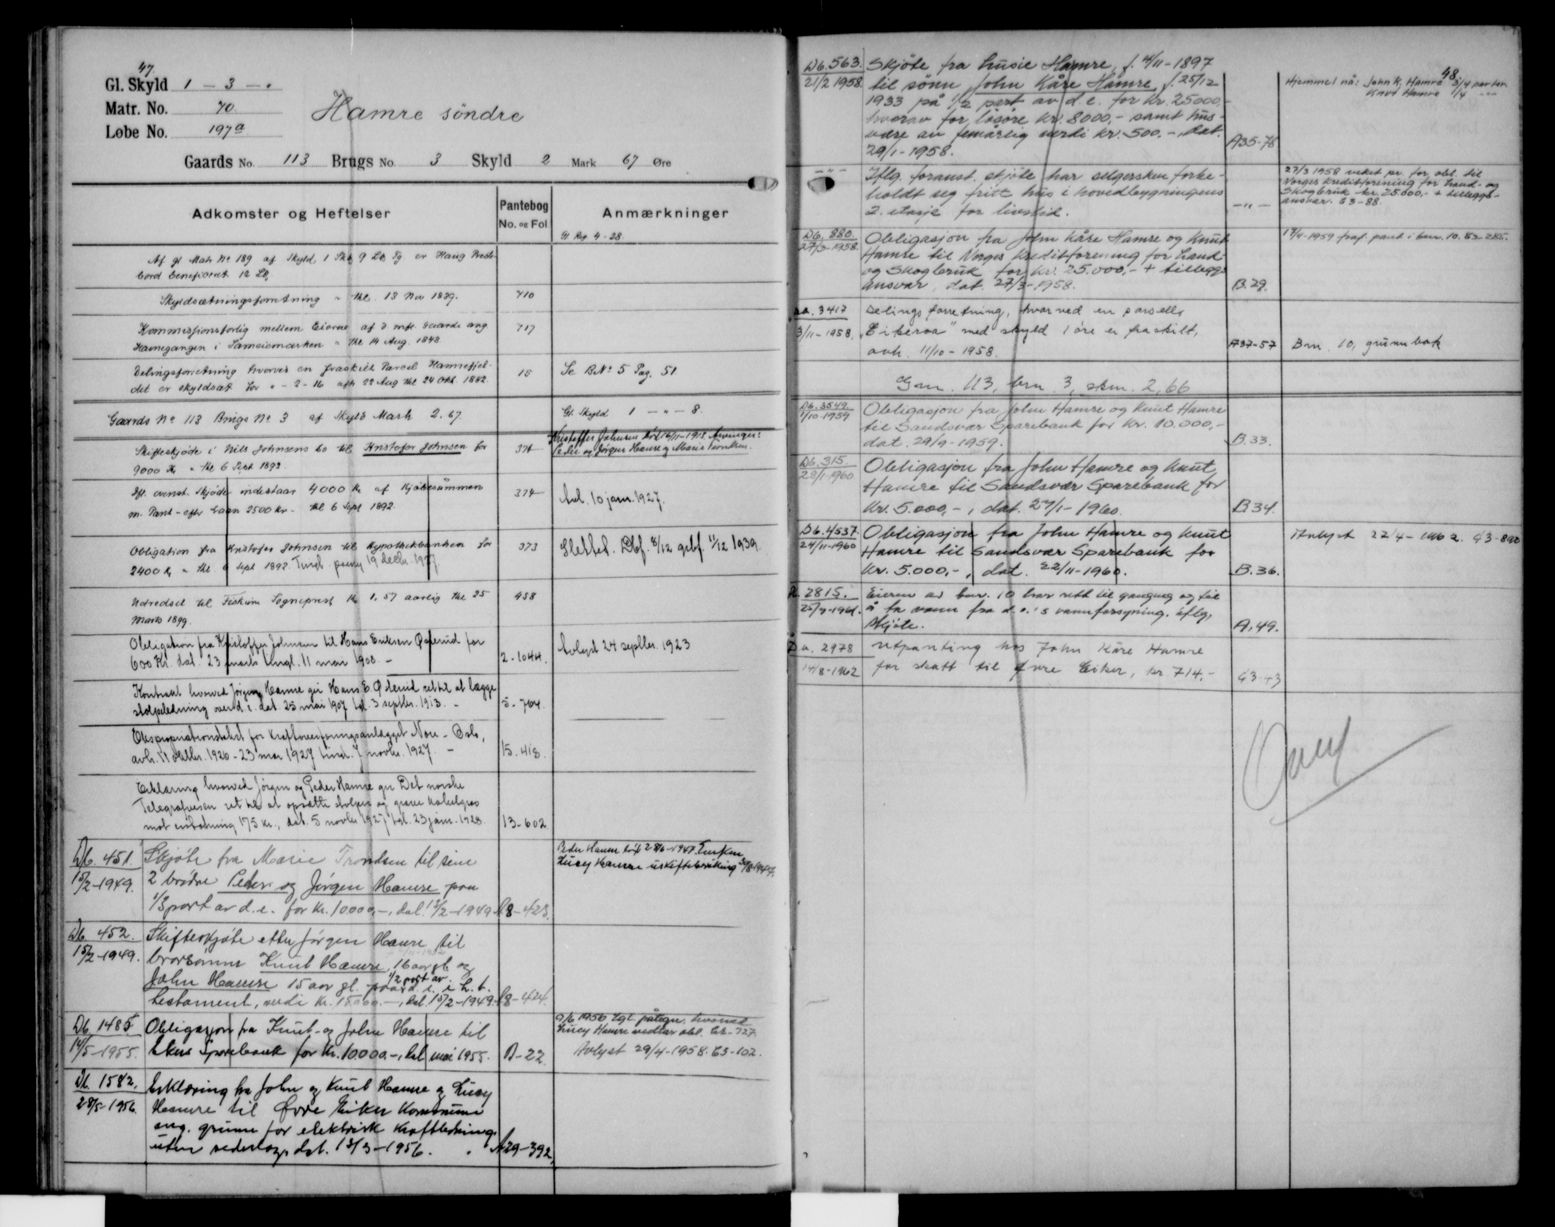 47
Gl. Skyld 1 - 3 - "
Matr. No. 70
Løbe No. 197a
Hamre söndre
Gaards No. 113 Brugs No. 3 Skyld 2 Mark 67 Øre
Adkomster og Heftelser
Pantebog
No. og Fol
Anmærkninger
Gl Reg 4-28
Af gl Matr No 189 af Skyld 1 Skd 9 Lb Tg er Haug Prest-
bord beneficeret 12 Lb
Skyldsætningsforretning " tkl. 18 Nov 1839. 710
Kommissionsforlig mellem Eierne af 3 mfl. Gaarde ang 717
Havnegangen i Sameiemarken " tkl 14 Aug. 1848
Delingsforretning hvorved en fraskilt Parcel Hamrefjel- 15 Se B No 5 Pag. 51
det er skyldsat for " - 2 - 16 afh 22 Aug tkl 24 Okt. 1882
Gaards No 113 Brugs No 3 af Skyld Mark 2.67 Gl. Skyld 1 - " - 8.
Skifteskjøde i Nils Johnsens bo til Kristofer Johnsen for 374
9000 Kr " tkl 6 Sept 1892
Kristoffer Johnsen død 16/11-1918 Arvinger:
Peder og Jørgen Hamre og Marie Trondsen.
Ift. ovenst. skjøde indestaar 4000 Kr af Kjøbesummen 374 Avl. 10 jan. 1927.
m. Pant - efter Laan 2500 kr - tkl 6 Sept 1892
Obligation fra Kristofer Johnsen til Hypothekbanken for 373 Slettet. Dbf. 8/12 gebf. 11/12 1939.
2400 Kr " tkl 6 Sept 1892.
Udredsel til Fiskum Sogneprest Kr 1.57 aarlig tkl 25 458
Marts 1899
Obligation fra Kristoffer Johnsen til Hans Eriksen Østerud for
600 Kr. dat. 23 marts tingl. 11 mai 1908. - 2-1044. Avlyst 24 septbr. 1923
Kontrakt hvorved Jørgen Hamre gir Hans E. Østerud ret til at lægge
stolpeledning over d.e. dat 25 mai 1907 tgl. 3 septbr. 1913. - 5-704.
Ekspropriationstakst for kraftoverføringsanlægget Nore - Oslo,
avh. 11 oktbr. 1926 - 23 mai 1927 tingl. 7 novbr. 1927. - 15.418.
Erklæring hvorved Jørgen og Peder Hamre gir Det norske
Telegrafvesen ret til at opsætte stolper og grave kabelgrøft
mot erstatning 175 kr., dat. 5 novbr 1927 tgl. 23 jan. 1928. 13-602
Db. 451. Skjøte fra Marie Trondsen til sine
15/2-1949. 2 brødre Peder og Jørgen Hamre paa
1/3 part av d.e. for kr. 10000,-, dat. 15/2-1949. A8-423.
Peder Hamre død 28/6-1947. Enken
Lucy Hamre uskiftebevilling 30/8-1947.
Db. 452. Skifteskjøte etter Jørgen Hamre til
15/2-1949. brorsønner Knut Hamre 16 aar gl. og
John Hamre 15 aar gl. paa 1/2 part av d.e. i h.t.
testament, verdi kr. 15000.-, dat. 15/2-1949. A8-424
Db. 1485 Obligasjon fra Knut og John Hamre til
14/5-1955. Ekers Sparebank for kr. 10000.-, dat. mai 1955. B-22.
9/6 1956 tgl. påtegn. hvorved
Lucy Hamre vedtar obl. C2-727
Avlyst 29/4-1958. C3-102.
Db. 1582. Erklæring fra John og Knut Hamre og Lucy
28/5-1956. Hamre til Øvre Eiker Kommune
ang. grunn for elektrisk kraftledning
uten vederlag, dat. 13/3-1956. A29-392.
48
Db. 563. Skjöte fra Lucie Hamre, f. 4/11-1897
21/2 1958. til sönn John Kåre Hamre, f. 25/12
1933 på 1/2 part av d.e. for kr. 25000,-
hvorav for lösöre kr. 8000,- samt hus-
være av femårlig verdi kr. 500,-, dat.
29/1-1958. A35-78
Hjemmel nå: John K. Hamre 3/4 parten
Knut Hamre 1/4 -"-
-"- Iflg. foranst. skjöte har selgersken forbe-
holdt seg fritt hus i hovedbygningens
2. etasje for livstid. -"-
27/3 1958 veket pr. for obl. til
Norges Kreditforening for Land- og
Skogbruk kr. 25.000,- + tilleggs-
ansvar. C3-88.
Db. 880. Obligasjon fra John Kåre Hamre og Knut
27/3-1958. Hamre til Norges Kreditforening for Land-
og Skogbruk for kr. 25.000,- + tilleggs-
ansvar, dat. 27/3-1958. B.29.
17/4-1959 fraf. pant i bnr. 10. C3-285.
Da. 3417 Delingsforretning, hvorved en parsell
3/11-1958. "Eikeroa" med skyld 1 öre er fraskilt,
avh. 11/10-1958. A37-57 Bnr. 10, grunnbok
Gnr. 113, bnr. 3, skm. 2,66
Db. 3549. Obligasjon fra John Hamre og Knut Hamre
1/10-1959 til Sandsvær Sparebank for kr. 10.000,-
dat. 29/9-1959. B33.
Db. 315 Obligasjon fra John Hamre og Knut
28/1-1960 Hamre til Sandsvær Sparebank for
kr. 5.000,-, dat. 27/1-1960. B34.
Db. 4537. Obligasjon fra John Hamre og Knut
24/11-1960 Hamre til Sandsvær Sparebank for
kr. 5.000,-, dat. 22/11-1960. B.36.
Avlyst 22/4-1962. C3-890
2815. Eieren av bnr. 10 har rett til gangveg og til
25/7-1961. å ta vann fra d.e.'s vannforsyning, iflg.
skjöte. A.49.
Da. 2978 Utpanting hos John Kåre Hamre
14/8-1962 for skatt til Øvre Eiker, kr 714,-